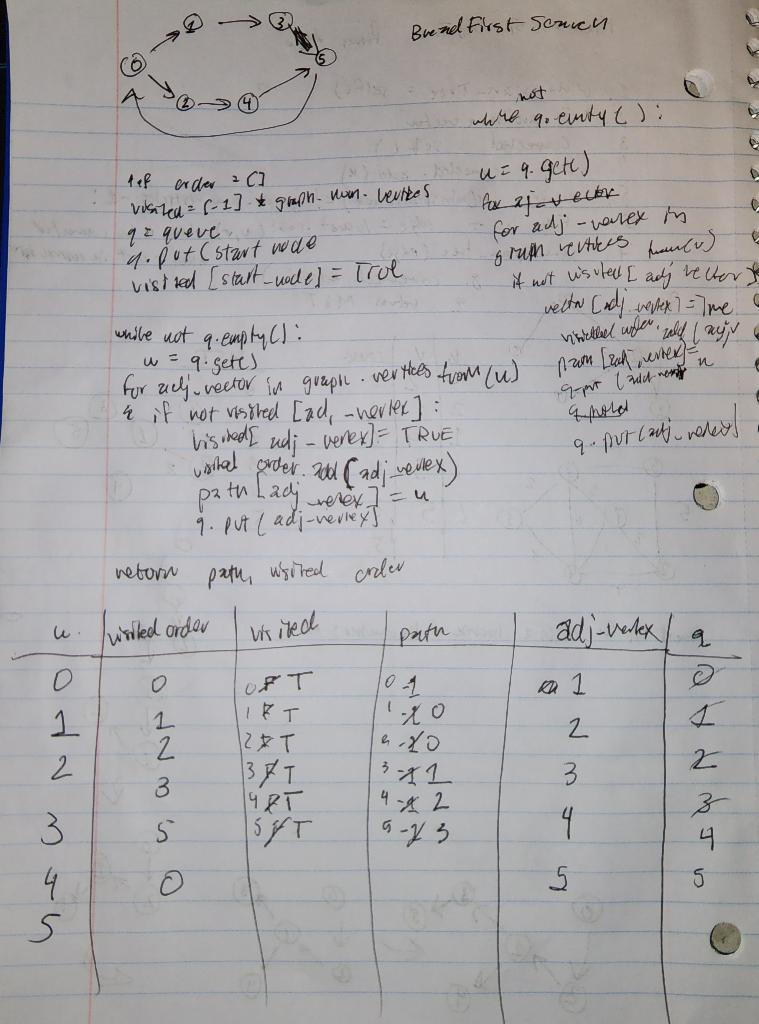 Breadth First Search
0 1 3 5 2 4
order = []
visited = [-1] * graph. num. vertices
q = queue
q. put (start node
visited [start_node] = True
while not q.empty():
u = q.get()
for adj_vector in graph. vertices from (u)
if not visited [adj_vertex]:
visited[adj_vertex] = TRUE
visited order. add (adj_vertex)
path [adj_vertex] = u
q. put (adj_vertex]
return path, visited order
not
while q.empty():
u = q.get()
for adj_vector
for adj_vertex in
graph vertices from(u)
if not visited [adj vector]
vector [adj_vertex] = True
visited order. add (adj v
path [adj_vertex] = u
q. put (adj_vertex]
u. visited order visited path adj-vertex q
0 0 0 F T 0 -1 1 0
1 1 1 F T 1 -1 0 2 1
2 2 F T 2 -1 0
2 3 3 F T 3 -1 1 3 2
4 F T 4 -1 2 3
3 5 5 F T 5 -1 3 4 4
4 0 5 5
5